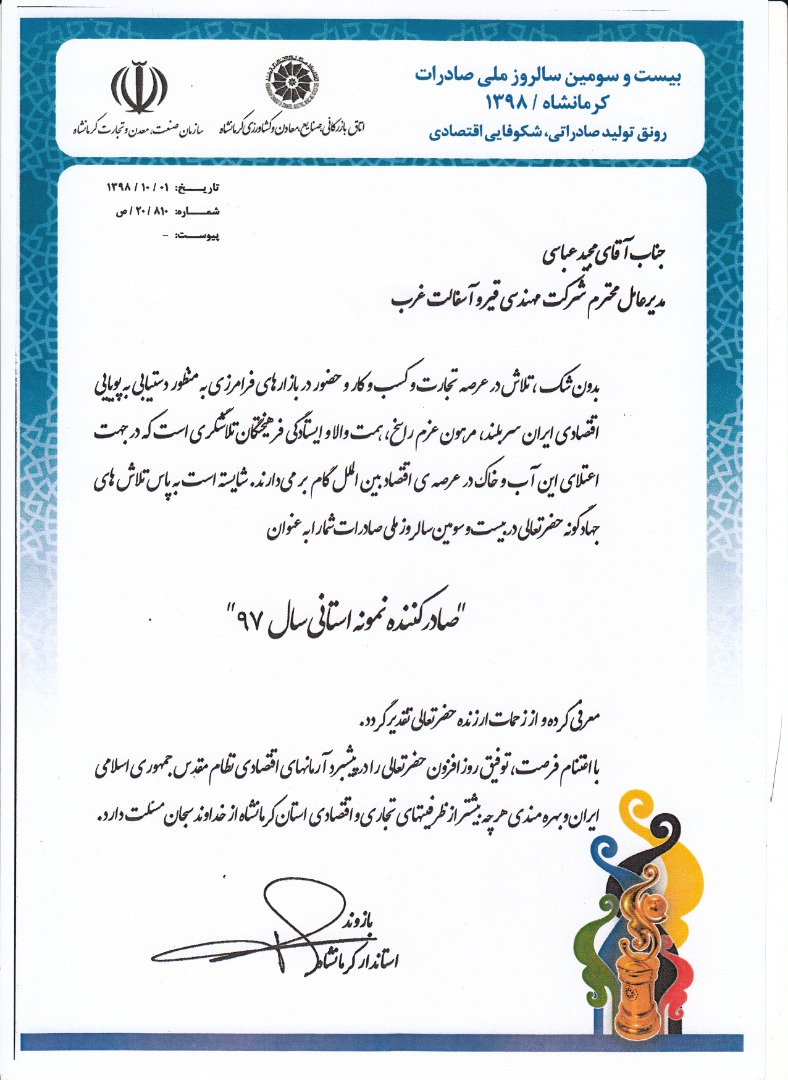 بیست و سومین سالروز ملی صادرات
کرمانشاه / ۱۳۹۸
رونق تولید صادراتی، شکوفایی اقتصادی
اتاق بازرگانی، صنایع، معادن و کشاورزی کرمانشاه
سازمان صنعت، معدن و تجارت کرمانشاه
تاریخ: ۱۳۹۸ / ۱۰ / ۰۱
شماره: ۸۱۰ / ۲۰ / ص
پیوست: -
جناب آقای مجید عباسی
مدیرعامل محترم شرکت مهندسی قیر و آسفالت غرب
بدون شک ، تلاش در عرصه تجارت و کسب و کار و حضور در بازارهای فرامرزی به منظور دستیابی به پویایی
اقتصادی ایران سربلند، مرهون عزم راسخ، همت والا و ایستادگی فرهیختگان تلاشگری است که در جهت
اعتلای این آب و خاک در عرصه ی اقتصاد بین الملل گام بر می دارند. شایسته است به پاس تلاش های
جهادگونه حضرتعالی در بیست و سومین سالروز ملی صادرات شما را به عنوان
"صادرکننده نمونه استانی سال ۹۷"
معرفی کرده و از زحمات ارزنده حضرتعالی تقدیر گردد.
با اغتنام فرصت، توفیق روز افزون حضرتعالی را در پیشبرد آرمانهای اقتصادی نظام مقدس جمهوری اسلامی
ایران و بهره مندی هر چه بیشتر از ظرفیتهای تجاری و اقتصادی استان کرمانشاه از خداوند سبحان مسئلت دارد.
بازوند
استاندار کرمانشاه